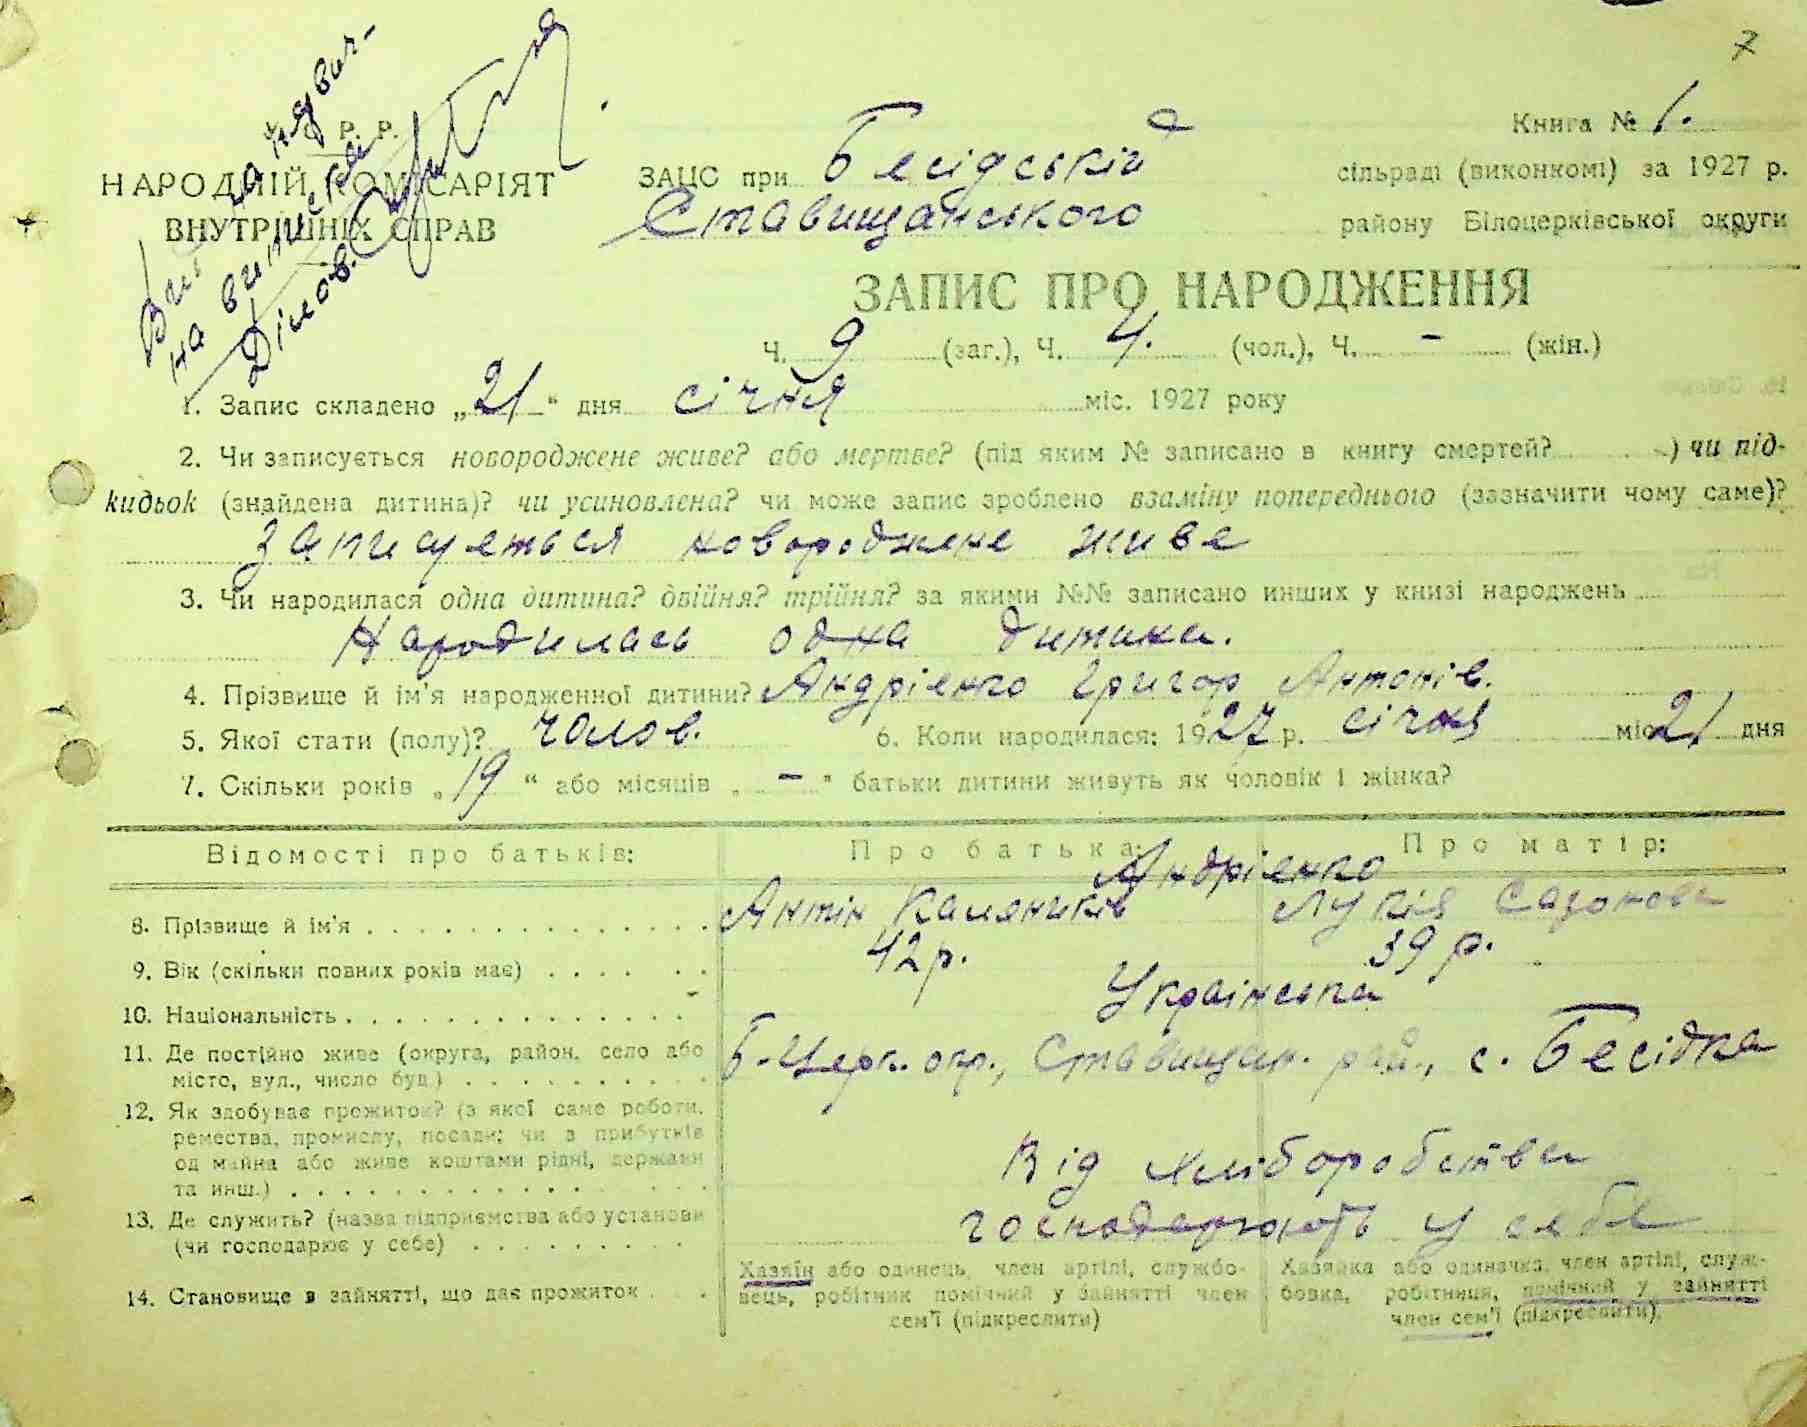 7
У. Р. Р.
НАРОДНІЙ КОМІСАРІЯТ
ВНУТРІШНІХ СПРАВ
на
Діловод
Книга № 1.
ЗАЦС при Бесідській сільраді (виконкомі) за 1927 р.
Ставищанського району Білоцерківської округи
ЗАПИС ПРО НАРОДЖЕННЯ
Ч. 9 (заг.), Ч. 4. (чол.), Ч. – (жін.)
1. Запис складено „21“ дня січня міс. 1927 року
2. Чи записується новороджене живе? або мертве? (під яким № записано в книгу смертей? ) чи під-
кидьок (знайдена дитина)? чи усиновлена? чи може запис зроблено взаміну попереднього (зазначити чому саме)?
Записується новороджене живе
3. Чи народилася одна дитина? двійня? трійня? за якими №№ записано инших у книзі народжень
Народилась одна дитина.
4. Прізвище й ім'я народженної дитини? Андрієнко Григор Антонів.
5. Якої стати (полу)? чолов. 6. Коли народилася: 1927 р. січня міс 21 дня
7. Скільки років „19“ або місяців „–“ батьки дитини живуть як чоловік і жінка?
Відомості про батьків: Про батька: Про матір:
Андрієнко
8. Прізвище й ім'я Антін Лукія
9. Вік (скільки повних років має) 42 р. 39 р.
10. Національність Українська
11. Де постійно живе (округа, район, село або
місто, вул., число буд.) Б-Церк. окр., Ставищан. рай., с. Бесідка
12. Як здобуває прожиток? (з якої саме роботи,
ремества, промислу, посади; чи з прибутків
од майна або живе коштами рідні, держави
та инш.) Від хліборобства
13. Де служить? (назва підприємства або установи
(чи господарює у себе) господарюють у себе
14. Становище в зайнятті, що дає прожиток
Хазяїн або одинець, член артілі, службо-
вець, робітник помічний у зайнятті член
сем'ї (підкреслити)
Хазяйка або одиначка, член артілі, служ-
бовка, робітниця, помічний у зайнятті
член сем'ї (підкреслити).